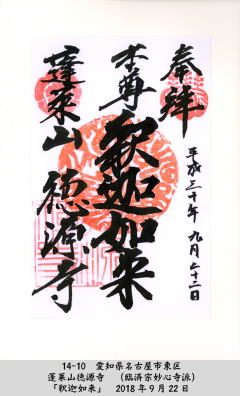 奉拝
平成三十年 九月二十二日
本尊
釈迦如来
蓬莱山 徳源寺
14-10 愛知県名古屋市東区
蓬莱山徳源寺 (臨済宗妙心寺派)
「釈迦如来」 2018年9月22日